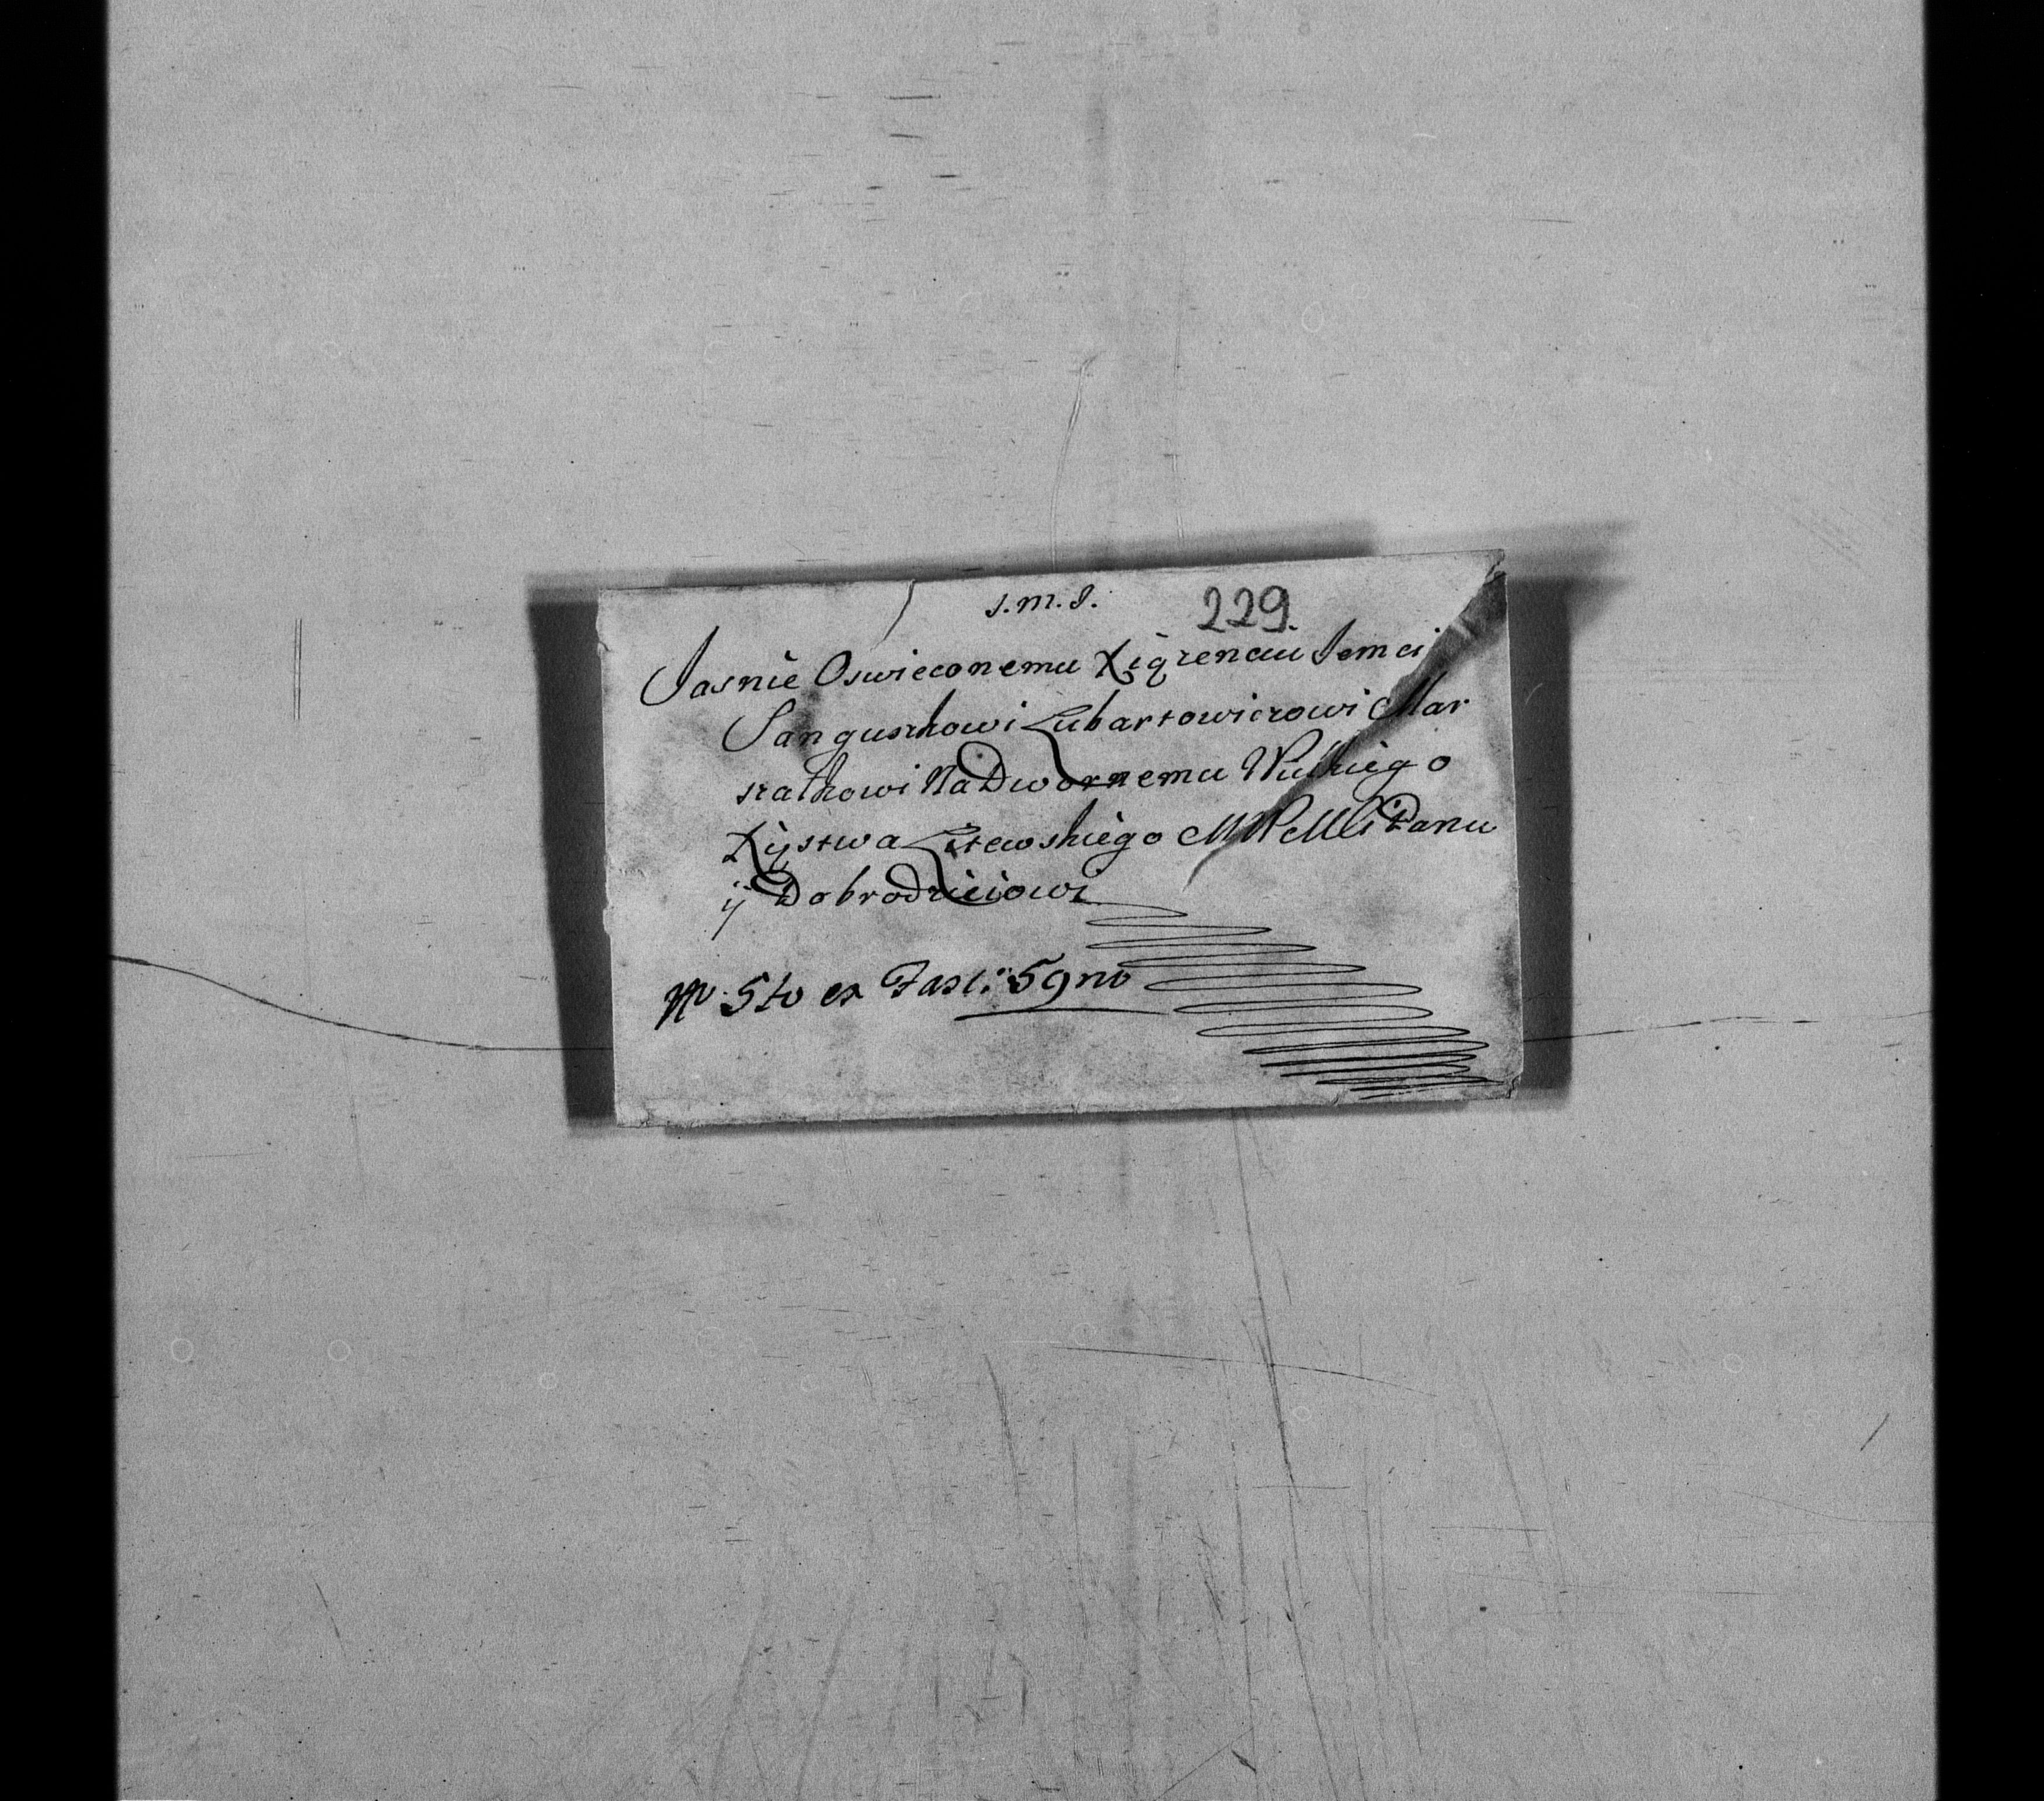 J. M. J.
229.
Jasnie Oswieconemu Xiązenciu Jemci
Sanguszkowi Lubartowiczowi Mar
szałkowi Nadwornemu Wielkiego
Xięstwa Litewskiego MWMci Panu
ij Dobrodzieiowi
No 5to ex Fasc: 59no